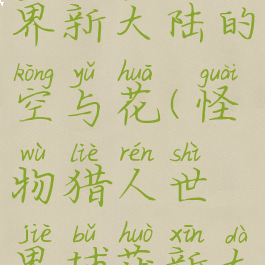 界新大陆的
kōng yǔ huā guài
空与花(怪
wù liè rén shì
物猎人世
jiè bǔ huò xīn dà
界捕获新大